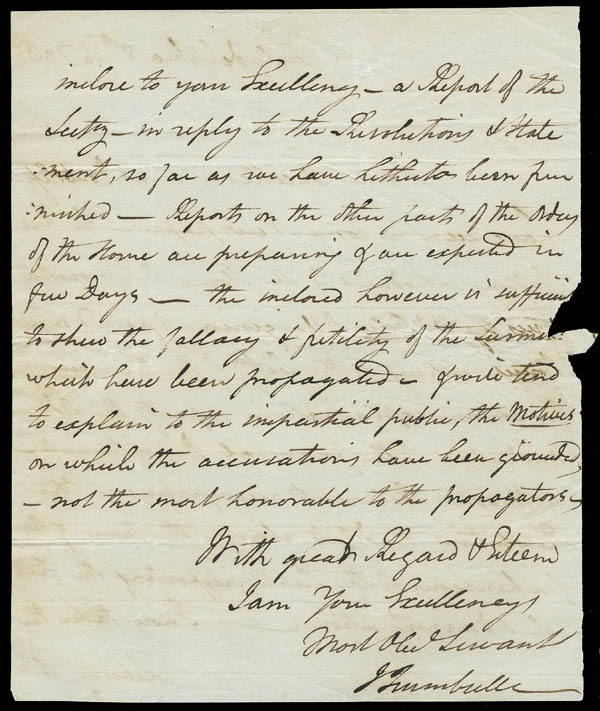 inclose to your Excellency – a Report of the
Secty – in reply to the Resolutions & State
ment, so far as we have hitherto been fur
nished – Reports on the other parts of the Orders
of the House are preparing & are expected in
few Days – the inclosed however is sufficient
to shew the fallacy & futility of the Surmises
which have been propagated – & will tend
to explain to the impartial public, the Motives
on which the accusations have been grounded,
– not the most honorable to the propagators –
With great Regard & Esteem
I am Your Excellencys
Most Obed Servant
J Trumbull